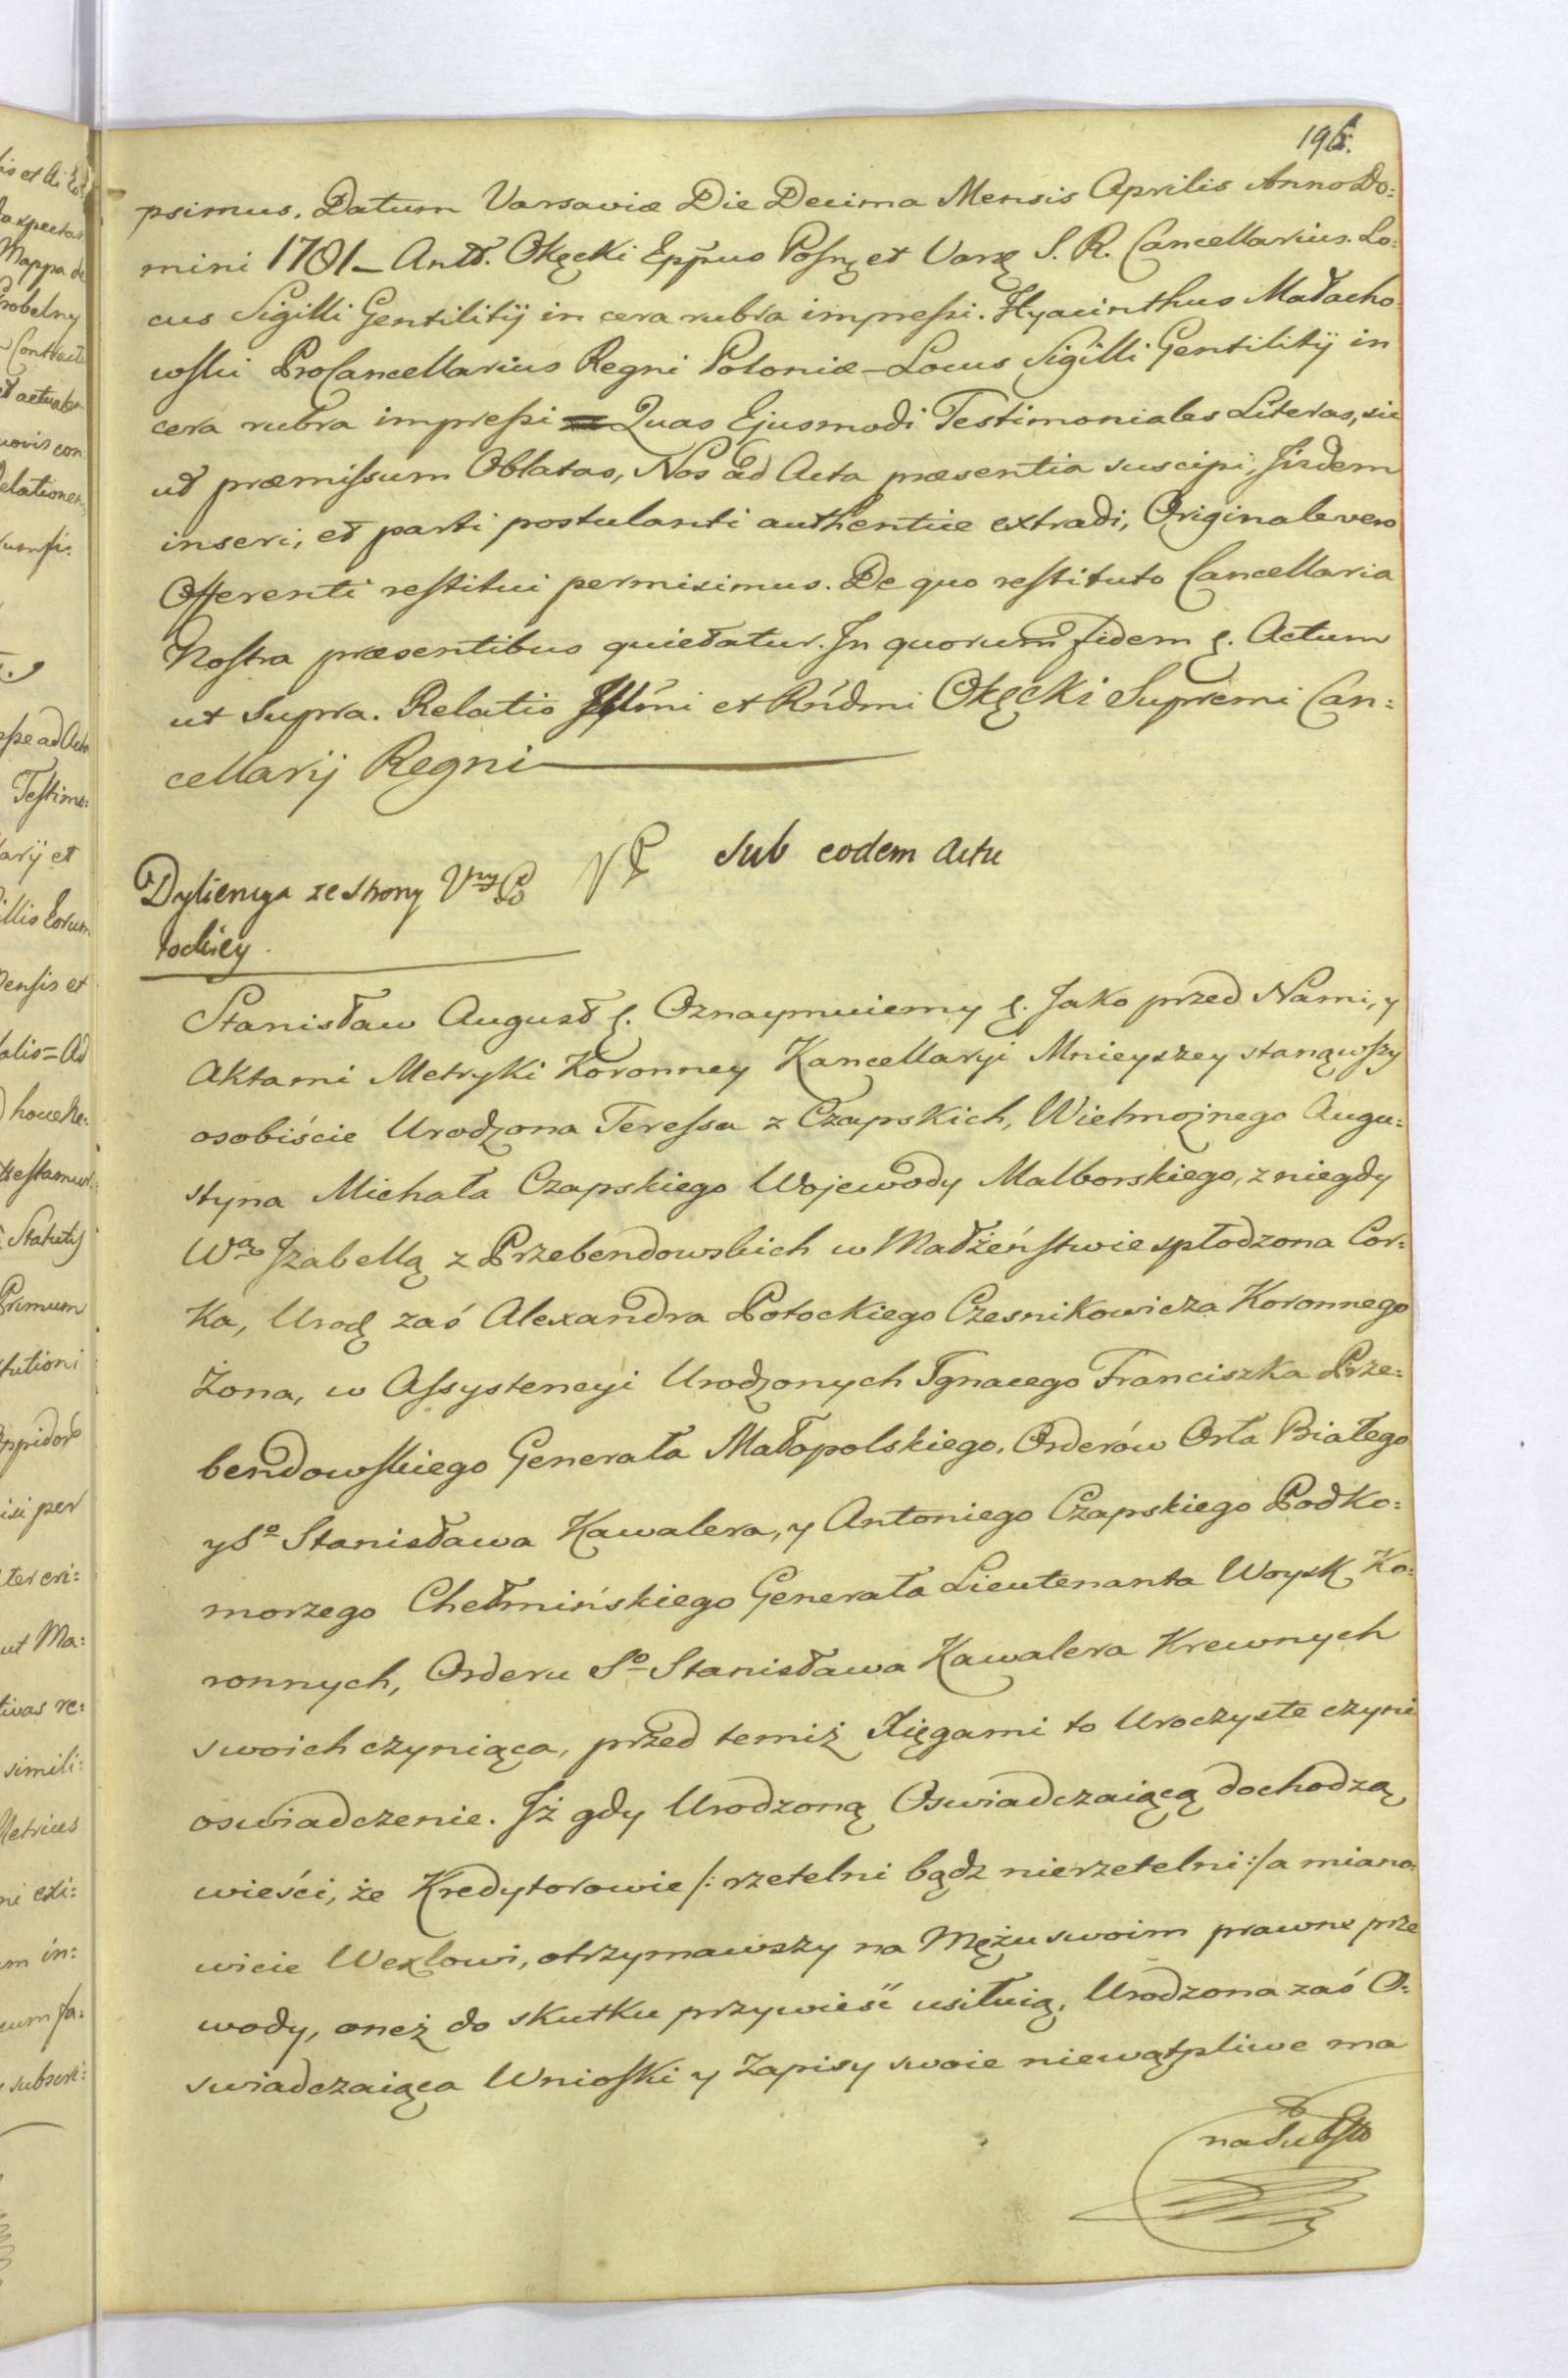 196.
psimus. Datum Varsaviæ Die Decima Mensis Aprilis Anno Do:
mini 1781 – Antt. Okęcki Eppus Posnę et Varsę S. R. Cancellarius. Lo:
cus Sigilli Gentilitij in cera rubra impressi. Hyacinthus Małacho
wski ProCancellarius Regni Poloniæ – Locus Sigilli Gentilitij in
cera rubra impressi = Quas Ejusmodi Testimoniales Literas, sic
ut præmissum Oblatas, Nos ad Acta præsentia suscipi, Iisdem
inseri, et parti postulanti authentice extradi, Originale vero
Offerenti restitui permisimus. De quo restituto Cancellaria
Nostra præsentibus quietatur. In quorum fidem ę. Actum
ut supra. Relatio Illmi et Rndmi Okęcki Supremi Can:
cellarij Regni
Dyliencya ze strony Vny Po
tockiey
sub eodem Actu
Stanisław August ę. Oznaymuiemy ę. Jako przed Nami, y
Aktami Metryki Koronney Kancellaryi Mnieyszey stanąwszy
osobiście Urodzona Teressa z Czapskich, Wielmożnego Augu:
styna Michała Czapskiego Wojewody Malborskiego, z niegdy
Wą Izabellą z Przebendowskich w Małżeństwie spłodzona Cor:
ka, Urodę zaś Alexandra Potockiego Czesnikowicza Koronnego
Żona, w Assystencyi Urodzonych Ignacego Franciszka Prze:
bendowskiego Generała Małopolskiego, Orderów Orła Białego
y So Stanisława Kawalera, y Antoniego Czapskiego Podko:
morzego Chełmińskiego Generała Lieutenanta Woysk Ko:
ronnych, Orderu So Stanisława Kawalera Krewnych
swoich czyniąca, przed temiż Xięgami to Uroczyste czyni
oswiadczenie. Iż gdy Urodzoną Oswiadczaiącą dochodzą
wieści, że Kredytorowie /: rzetelni bądz nierzetelni :/ a miano:
wicie Wexlowi, otrzymawszy na Mężu swoim prawne prze
wody, oneż do skutku przywieść usiłuią, Urodzona zaś O:
swiadczaiąca Wnioski y Zapisy swoie niewątpliwe ma
na